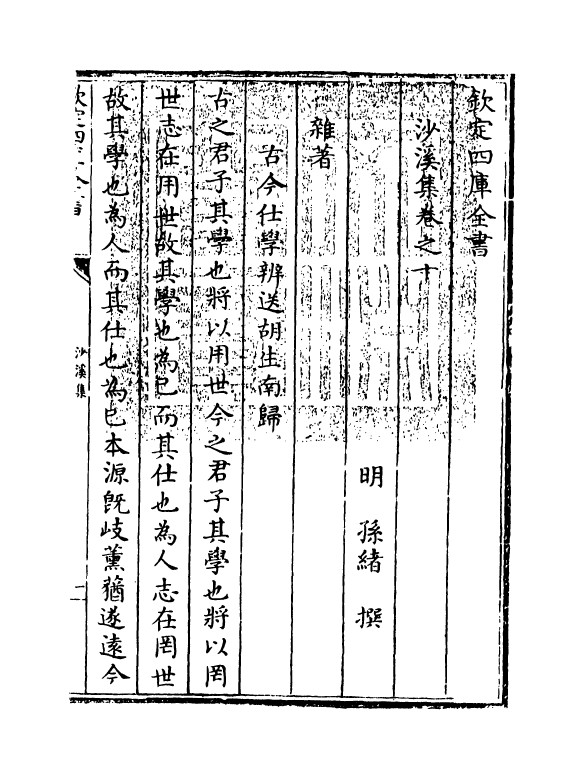 欽定四庫全書
沙溪集卷之十
明　孫緒　撰
雜著
古今仕學辨送胡生南歸
古之君子其學也將以用世今之君子其學也將以罔
世志在用世故其學也為已而其仕也為人志在罔世
故其學也為人而其仕也為已本源既岐薰猶遂遠今
欽定四庫全書
沙溪集
一